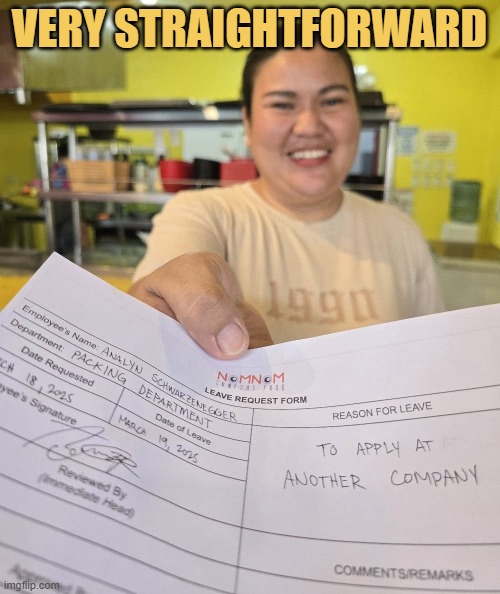 VERY STRAIGHTFORWARD
1990
NOMNOM
COMFORT FOOD
LEAVE REQUEST FORM
Employee's Name: ANALYN SCHWARZENEGGER
Department: PACKING DEPARTMENT
Date Requested
Date of Leave
CH 18, 2025
MARCH 19, 2025
yee's Signature
Reviewed By
(Immediate Head)
REASON FOR LEAVE
TO APPLY AT
ANOTHER COMPANY
COMMENTS/REMARKS
imgflip.com